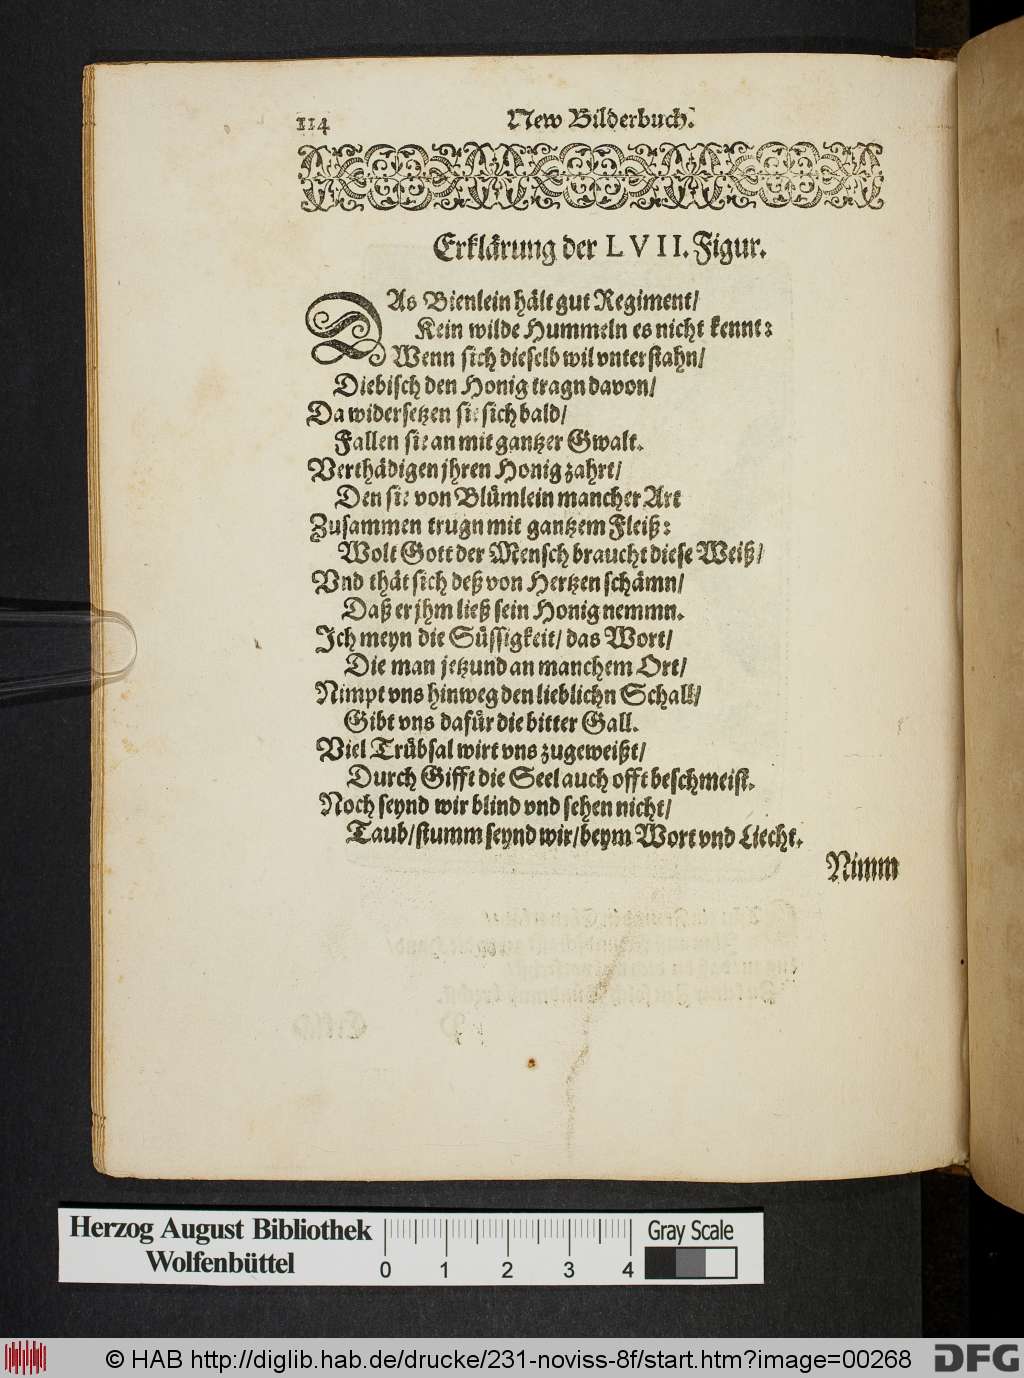 114
New Bilderbuch.
Erklärung der LVII. Figur.
DAs Bienlein hält gut Regiment/
Kein wilde Hummeln es nicht kennt:
Wenn sich dieselb wil vnterstahn/
Diebisch den Honig tragn davon/
Da widersetzen sie sich bald/
Fallen sie an mit gantzer Gwalt.
Verthädigen jhren Honig zahrt/
Den sie von Blümlein mancher Art
Zusammen trugn mit gantzem Fleiß:
Wolt Gott der Mensch braucht diese Weiß/
Vnd thät sich deß von Hertzen schämn/
Daß er jhm ließ sein Honig nemmn.
Ich meyn die Süssigkeit/ das Wort/
Die man jetzund an manchem Ort/
Nimpt vns hinweg den lieblichn Schall/
Gibt vns dafür die bitter Gall.
Viel Trübsal wirt vns zugeweißt/
Durch Gifft die Seel auch offt beschmeist.
Noch seynd wir blind vnd sehen nicht/
Taub/ stumm seynd wir/ beym Wort vnd Liecht.
Nimm
Herzog August Bibliothek
Wolfenbüttel
0 1 2 3 4
Gray Scale
© HAB http://diglib.hab.de/drucke/231-noviss-8f/start.htm?image=00268
DFG